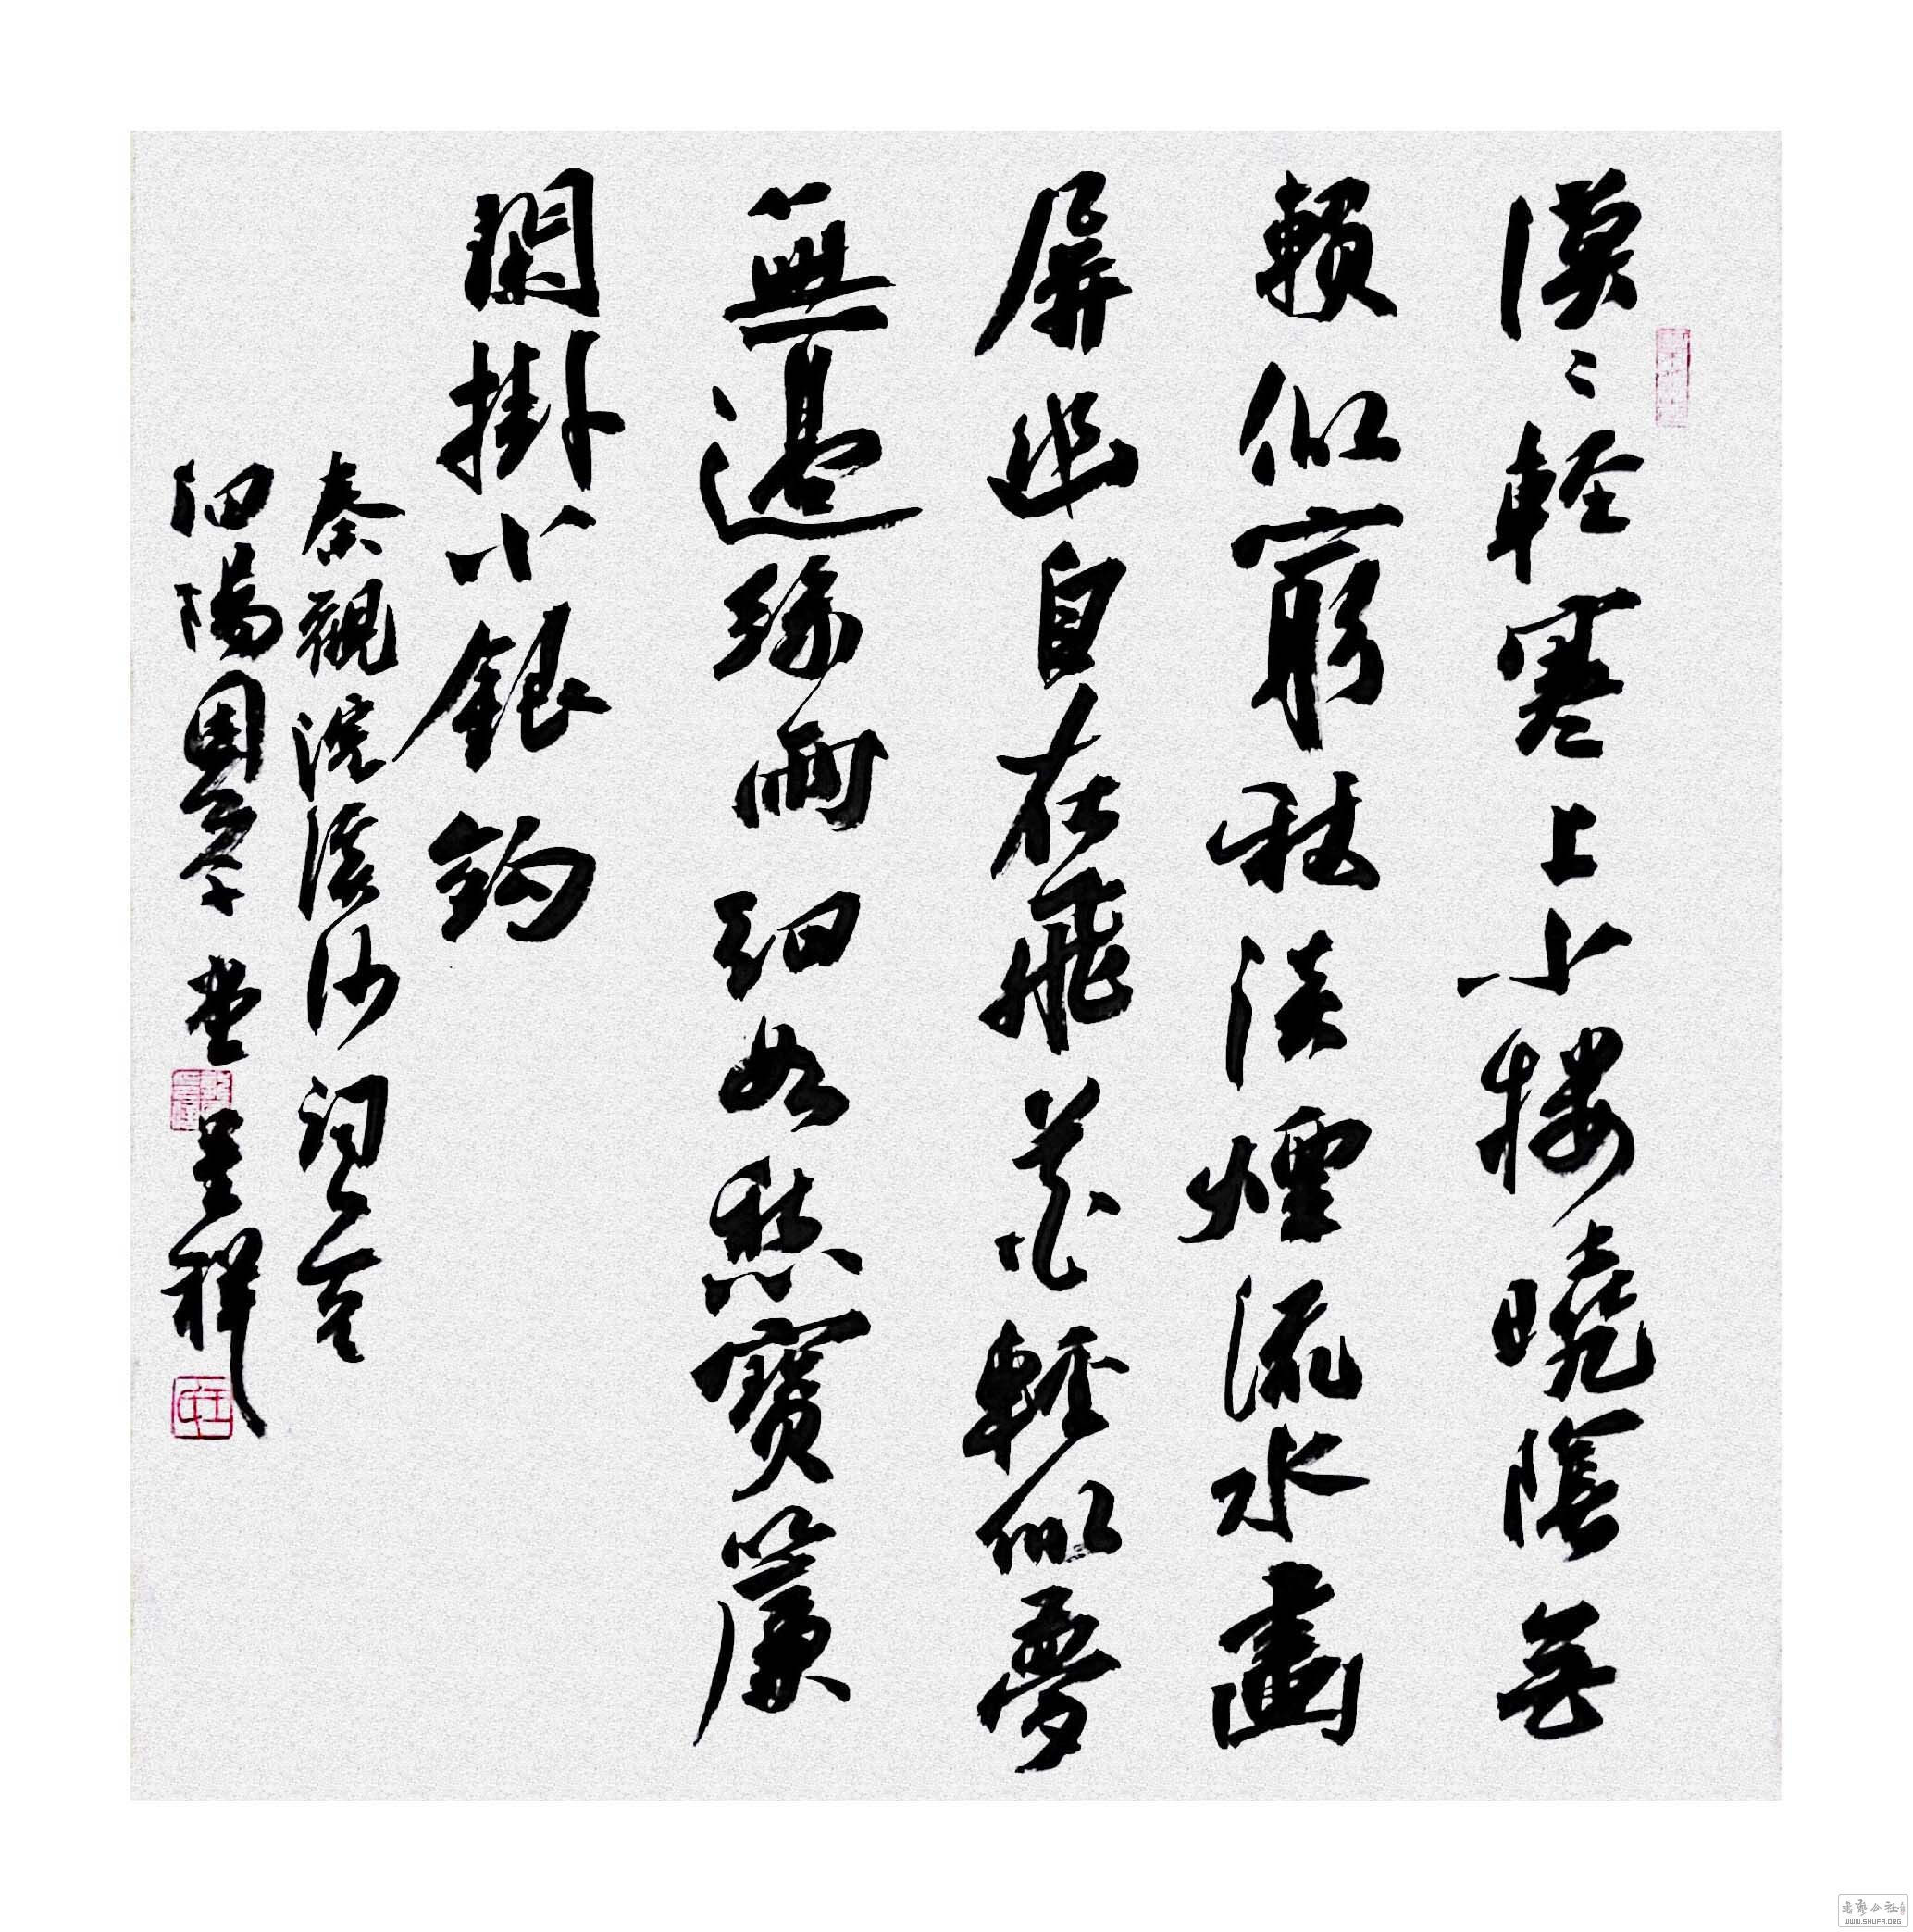 漠々軽寒上小樓曉陰無
賴似窮秋淡煙流水畫
屏幽自在飛花輕似夢
無邊絲雨細如愁寶簾
閑掛小銀鉤
秦觀浣溪沙詞一首
泗陽
WWW.SHUFA.ORG